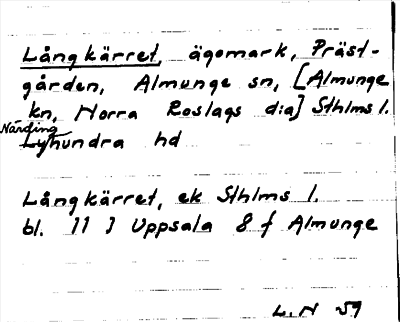 Långkärret, ägomark, Präst-
gården, Almunge sn, [Almunge
kn, Norra Roslags dia] Sthlms l.
Närding
Lyhundra hd
Långkärret, ek Sthlms l.
bl. 11 I Uppsala 8 f Almunge
L. N 59